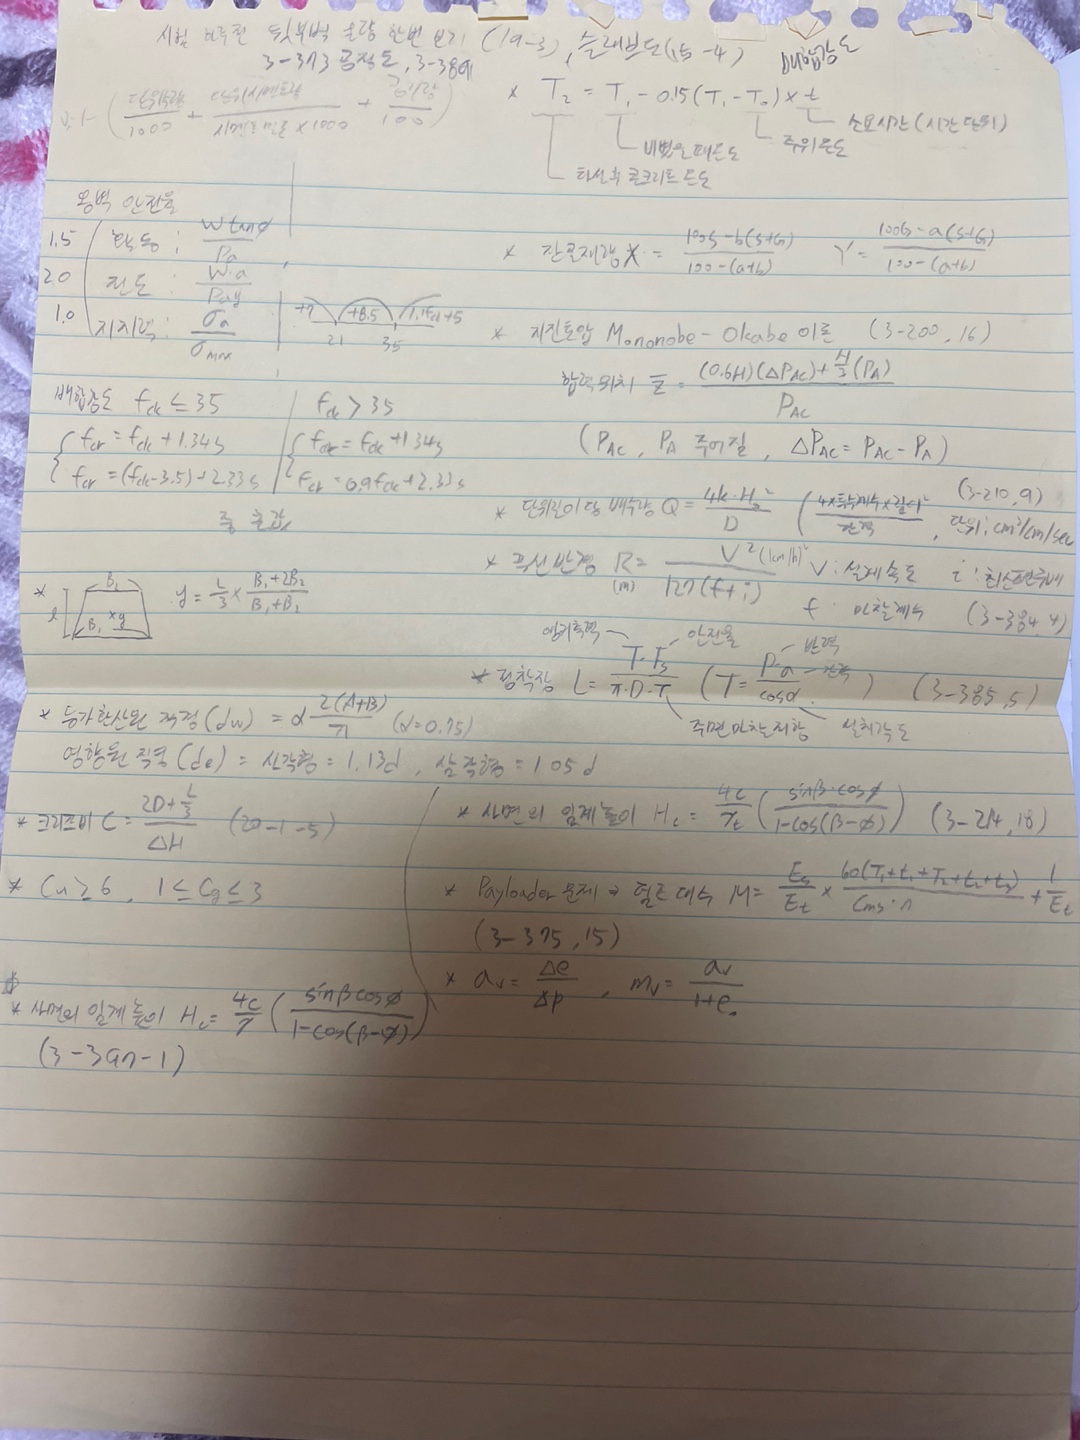 시험 하루전 뒷부벽 물량 한번 보기 (19-3), 슬래브도(15-4) 배합강도
3-373 공적도, 3-38에
( 단위수량/1000 + 단위시멘트량/시멘트비중×1000 + 공기량/100 )
* T₂ = T₁ - 0.15(T₁ - T₀) × t
소요시간 (시간단위)
주위온도
비볐을때온도
타설후 콘크리트 온도
옹벽 안전율
1.5 활동 : Wtanφ/Pa
2.0 전도 : W·a/Pa·y
1.0 지지력 : σa/σmax
+7 +8.5 1.1fck+5
21 35
* 잔골재량 X = 100S-b(S+G)/100-(a+b) Y = 100G-a(S+G)/100-(a+b)
* 지진토압 Mononobe-Okabe 이론 (3-200, 16)
합력위치 z̄ = (0.6H)(ΔPAC)+H/3(PA) / PAC
(PAC, PA 주어짐, ΔPAC = PAC - PA)
배합강도 fck ≤ 35 fck > 35
fcr = fck + 1.34s fcr = fck + 1.34s
fcr = (fck-3.5)+2.33s fcr = 0.9fck+2.33s
중 큰값
* 단위길이당 배수량 Q = 4k·H₀²/D ( 4×투수계수×길이²/간격 (3-210, 9) 단위: cm³/cm/sec
* 곡선반경 R(m) = V²(km/h)/127(f+i) V: 설계속도 i: 최소편구배
f: 마찰계수 (3-384, 4)
* B₂ l B₁ y y = L/3 × B₁+2B₂/B₁+B₂
앵커축력 안전율 반력
* 정착장 L = T·Fs/π·D·τ ( T = P·a/cosα ) 간격 (3-385, 5)
주면마찰저항 설치각도
* 등가환산원 직경(dw) = α 2(A+B)/π (α=0.75)
영향원 직경(de) = 사각형 = 1.13d, 삼각형 = 1.05d
* 크리프비 C = 2D+L/3 / ΔH (20-1-5)
* Cu ≥ 6, 1 ≤ Cg ≤ 3
* 사면의 임계높이 Hc = 4c/γt ( sinβ·cosφ/1-cos(β-φ) ) (3-214, 18)
* Payloader 문제 → 덤프 대수 M = Es/Et × 60(T₁+t₁+T₂+t₂+t₃)/Cms·n + 1/Et
(3-375, 15)
* av = Δe/Δp, mv = av/1+e₀
* 사면의 임계높이 Hc = 4c/γ ( sinβcosφ/1-cos(β-φ) )